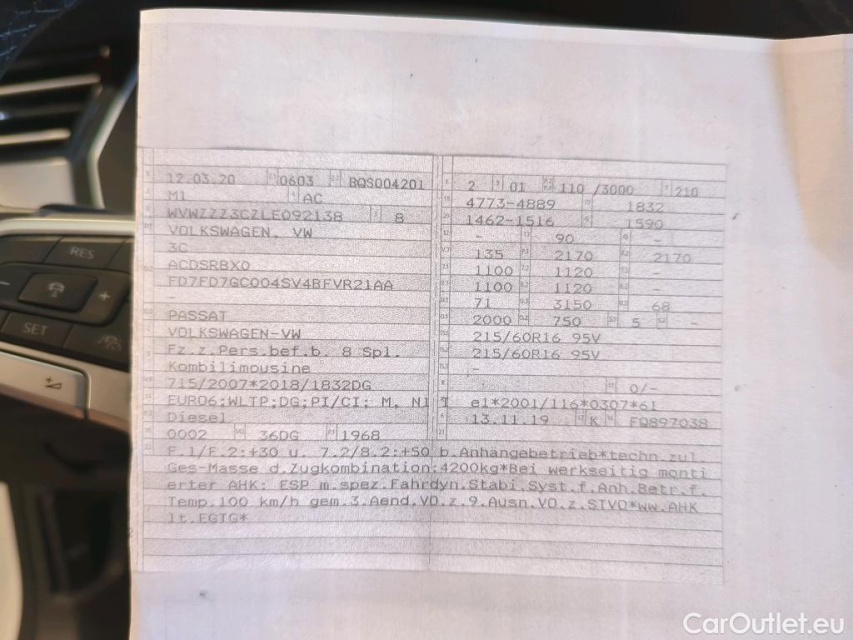 12.03.20 0603 BQS004201
M1 AC
WVWZZZ3CZLE092138 8
VOLKSWAGEN, VW
3C
ACDSRBX0
FD7FD7GC004SV4BFVR21AA
-
PASSAT
VOLKSWAGEN-VW
Fz.z.Pers.bef.b. 8 Spl.
Kombilimousine
715/2007*2018/1832DG
EURO6;WLTP;DG;PI/CI; M, N1 I
Diesel
0002 36DG 1968
2 01 110 /3000 210
4773-4889 1832
1462-1516 1590
- 90 -
135 2170 2170
1100 1120 -
1100 1120 -
71 3150 68
2000 750 5 -
215/60R16 95V
215/60R16 95V
-
- 0/-
e1*2001/116*0307*61
13.11.19 K FQ897038
F.1/F.2:+30 u. 7.2/8.2:+50 b.Anhängebetrieb*techn.zul
Ges-Masse d.Zugkombination:4200kg*Bei werkseitig monti
erter AHK: ESP m.spez.Fahrdyn.Stabi.Syst.f.Anh.Betr.f.
Temp.100 km/h gem.3.Aend.VO.z.9.Ausn.VO.z.STVO*ww.AHK
lt.EGTG*
RES
+
-
SET
CarOutlet.eu